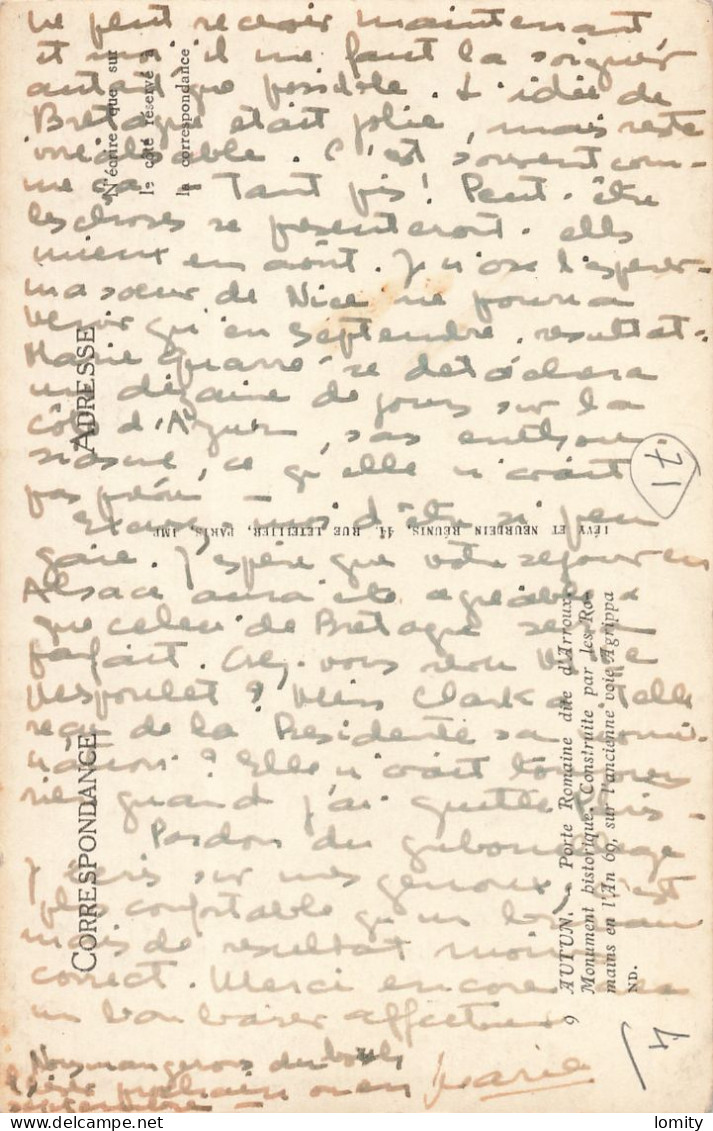 ne peut recevoir maintenant
et moi il me faut la soigner
autant que possible. L'idée de
Bretagne était jolie, mais reste
irréalisable. C'est souvent com-
me ça - Tant pis! Peut-être
les choses se présenteront-elles
mieux en août. Je n'ose l'espérer
ma sœur de Nice ne pourra
venir qu'en septembre. résultat-
Marie Quarré se détachera
une dizaine de jours sur la
côte d'Azur, sans enthou-
siasme, ce qu'elle n'avait
pas prévu -
Excusez-moi d'être si peu
gaie. J'espère que votre séjour en
Alsace aura été agréable &
que celui de Bretagne sera
parfait. Avez-vous revu
Miss Clark a-t-elle
reçu de la Présidente sa nomi-
nation? Elle n'avait toujours
rien quand j'ai quitté Paris -
Pardon du
J'écris sur mes genoux, c'est
plus confortable qu'un bureau
mais de résultat moins
correct. Merci encore
un bon baiser affectueux
Marie
Nous mangerons du
l'hiver prochain ou en
septembre -
71
4
N'écrire que sur
le côté réservé à
la correspondance
ADRESSE
CORRESPONDANCE
LÉVY ET NEURDEIN RÉUNIS, 44, RUE LETELLIER, PARIS, IMP
9 AUTUN. - Porte Romaine dite d'Arroux.
Monument historique. Construite par les Ro-
mains en l'An 69, sur l'ancienne voie Agrippa
ND.
lomity